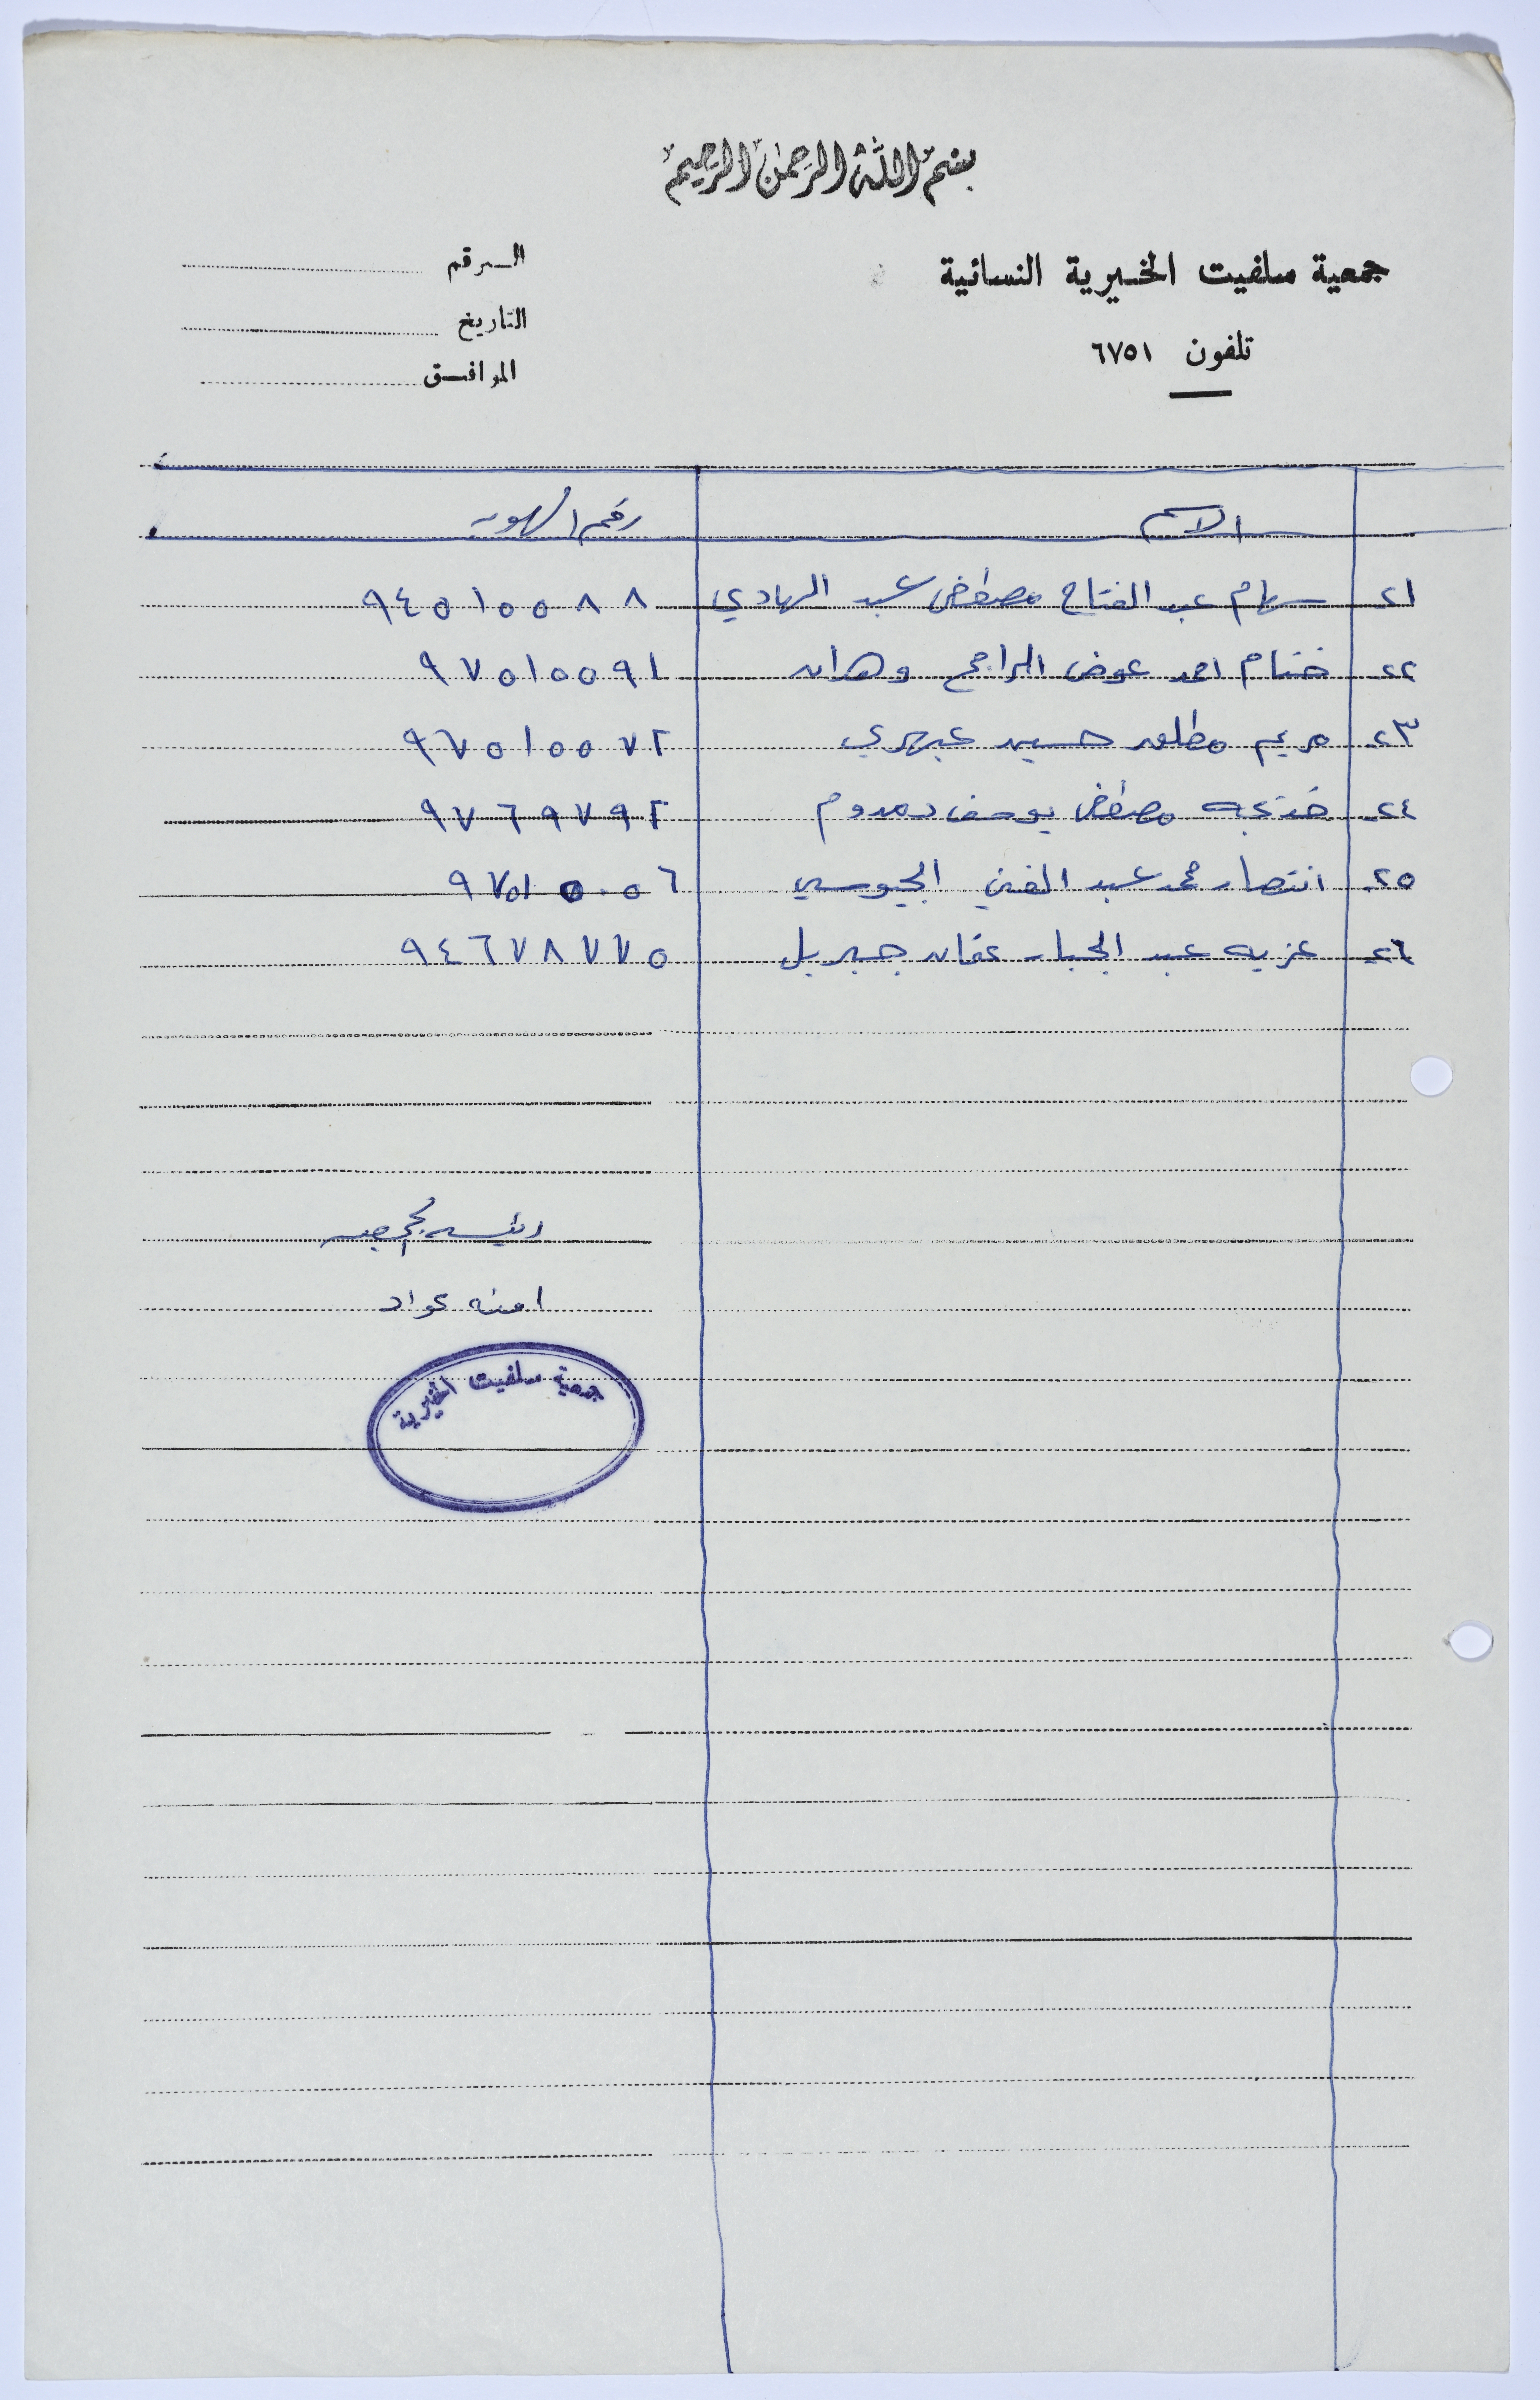 بسم الله الرحمن الرحيم
جمعية سلفيت الخيرية النسائية
تلفون ٦٧٥١
الرقم
التاريخ
الموافق
الاسم رقم الهويه
٢١- سهام عبد الفتاح مصطفى عبد الهادي ٩٤٥١٥٥٨٨
٢٢- ختام احمد عوض المراجح وهدان ٩٧٥١٥٥٩١
٢٣- مريم مطلق حسين عبهري ٩٦٥١٥٥٧٢
٢٤- خديجه مصطفى يوسف دمدوم ٩٧٦٩٧٩٢
٢٥- انتصار محمد عبد الغني الجيوسي ٩٧٥١٥٠٥٦
٢٦- عزيه عبد الجبار عفانه جبريل ٩٤٦٧٨٧٧٥
رئيسه الجمعيه
امنه عواد
جمعية سلفيت الخيرية